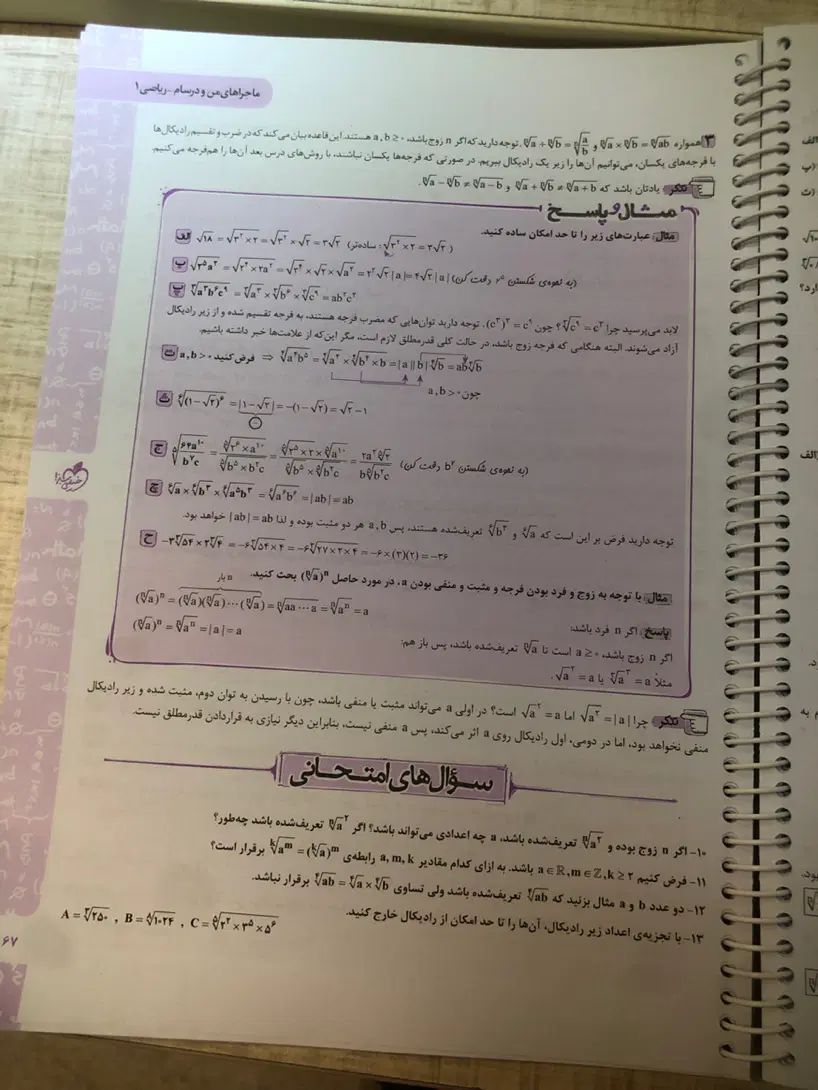 ماجراهای من و درسام - ریاضی ۱
۳ همواره ⁿ√a × ⁿ√b = ⁿ√ab و ⁿ√a ÷ ⁿ√b = ⁿ√(a/b). توجه دارید که اگر n زوج باشد، a , b ≥ ۰ هستند. این قاعده بیان می‌کند که در ضرب و تقسیم رادیکال‌ها
با فرجه‌های یکسان، می‌توانیم آن‌ها را زیر یک رادیکال ببریم. در صورتی که فرجه‌ها یکسان نباشند، با روش‌های درس بعد آن‌ها را هم‌فرجه می‌کنیم.
تذکر یادتان باشد که ⁿ√a + ⁿ√b ≠ ⁿ√(a+b) و ⁿ√a − ⁿ√b ≠ ⁿ√(a−b).
مثال و پاسخ
مثال: عبارت‌های زیر را تا حد امکان ساده کنید.
الف √۱۸ = √(۳² × ۲) = √۳² × √۲ = ۳√۲ (ساده‌تر: √(۳² × ۲) = ۳√۲)
ب √(۲⁵a²) = √(۲⁴ × ۲a²) = √۲⁴ × √۲ × √a² = ۲²√۲ |a| = ۴√۲ |a| (به نحوه‌ی شکستن ۲⁵ دقت کن)
پ ³√(a³b⁶c⁹) = ³√a³ × ³√b⁶ × ³√c⁹ = ab²c³
لابد می‌پرسید چرا ³√c⁹ = c³؟ چون (c³)³ = c⁹. توجه دارید توان‌هایی که مضرب فرجه هستند، به فرجه تقسیم شده و از زیر رادیکال
آزاد می‌شوند. البته هنگامی که فرجه زوج باشد، در حالت کلی قدرمطلق لازم است، مگر این‌که از علامت‌ها خبر داشته باشیم.
ت فرض کنید a , b > ۰ ⇒ ⁴√(a⁴b⁵) = ⁴√a⁴ × ⁴√(b⁴ × b) = |a||b| ⁴√b = ab ⁴√b
چون a , b > ۰
ث ⁶√(۱−√۲)⁶ = |۱−√۲| = −(۱−√۲) = √۲ −۱
ج ⁵√(۶۴a¹⁰/b⁷c) = ⁵√(۲⁶ × a¹⁰)/⁵√(b⁵ × b²c) = (⁵√(۲⁵ × ۲) × ⁵√a¹⁰)/(⁵√b⁵ × ⁵√(b²c)) = ۲a² ⁵√۲/(b ⁵√(b²c)) (به نحوه‌ی شکستن b⁷ دقت کن)
چ ⁶√a × ⁶√b³ × ⁶√(a⁵b³) = ⁶√(a⁶b⁶) = |ab| = ab
توجه دارید فرض بر این است که ⁶√a و ⁶√b³ تعریف‌شده هستند، پس a , b هر دو مثبت بوده و لذا |ab| = ab خواهد بود.
ح −۳ ³√۵۴ × ۲ ³√۴ = −۶ ³√(۵۴ × ۴) = −۶ ³√(۲۷ × ۲ × ۴) = −۶ × (۳)(۲) = −۳۶
مثال: با توجه به زوج و فرد بودن فرجه و مثبت و منفی بودن a ، در مورد حاصل (ⁿ√a)ⁿ بحث کنید.
پاسخ: اگر n فرد باشد: (ⁿ√a)ⁿ = (ⁿ√a)(ⁿ√a)⋯(ⁿ√a) = ⁿ√(aa⋯a) = ⁿ√aⁿ = a n بار
اگر n زوج باشد، a ≥ ۰ است تا ⁿ√a تعریف‌شده باشد، پس باز هم: (ⁿ√a)ⁿ = ⁿ√aⁿ = |a| = a
مثلاً ³√a³ = a یا √a² = a.
تذکر چرا √a² = |a| اما √a² = a است؟ در اولی a می‌تواند مثبت یا منفی باشد، چون با رسیدن به توان دوم، مثبت شده و زیر رادیکال
منفی نخواهد بود، اما در دومی، اول رادیکال روی a اثر می‌کند، پس a منفی نیست، بنابراین دیگر نیازی به قراردادن قدرمطلق نیست.
سؤال‌های امتحانی
۱۰- اگر n زوج بوده و ⁿ√a² تعریف‌شده باشد، a چه اعدادی می‌تواند باشد؟ اگر ⁿ√a² تعریف‌شده باشد چه‌طور؟
۱۱- فرض کنیم a∈ℝ , m∈ℤ , k ≥ ۲ باشد. به ازای کدام مقادیر a, m, k رابطه‌ی ᵏ√aᵐ = (ᵏ√a)ᵐ برقرار است؟
۱۲- دو عدد b و a مثال بزنید که ⁴√ab تعریف‌شده باشد ولی تساوی ⁴√ab = ⁴√a × ⁴√b برقرار نباشد.
۱۳- با تجزیه‌ی اعداد زیر رادیکال، آن‌ها را تا حد امکان از رادیکال خارج کنید. A = ³√۲۵۰ , B = ⁸√۱۰۲۴ , C = ⁵√(۲² × ۳⁵ × ۵⁶)
۶۷